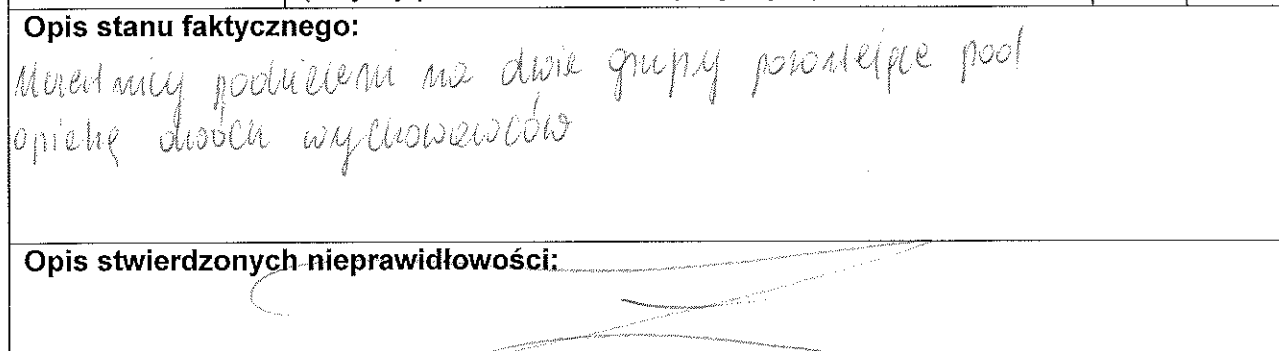 Opis stanu faktycznego:
Uczestnicy podzieleni na dwie grupy pozostające pod
opieką dwóch wychowawców
Opis stwierdzonych nieprawidłowości: